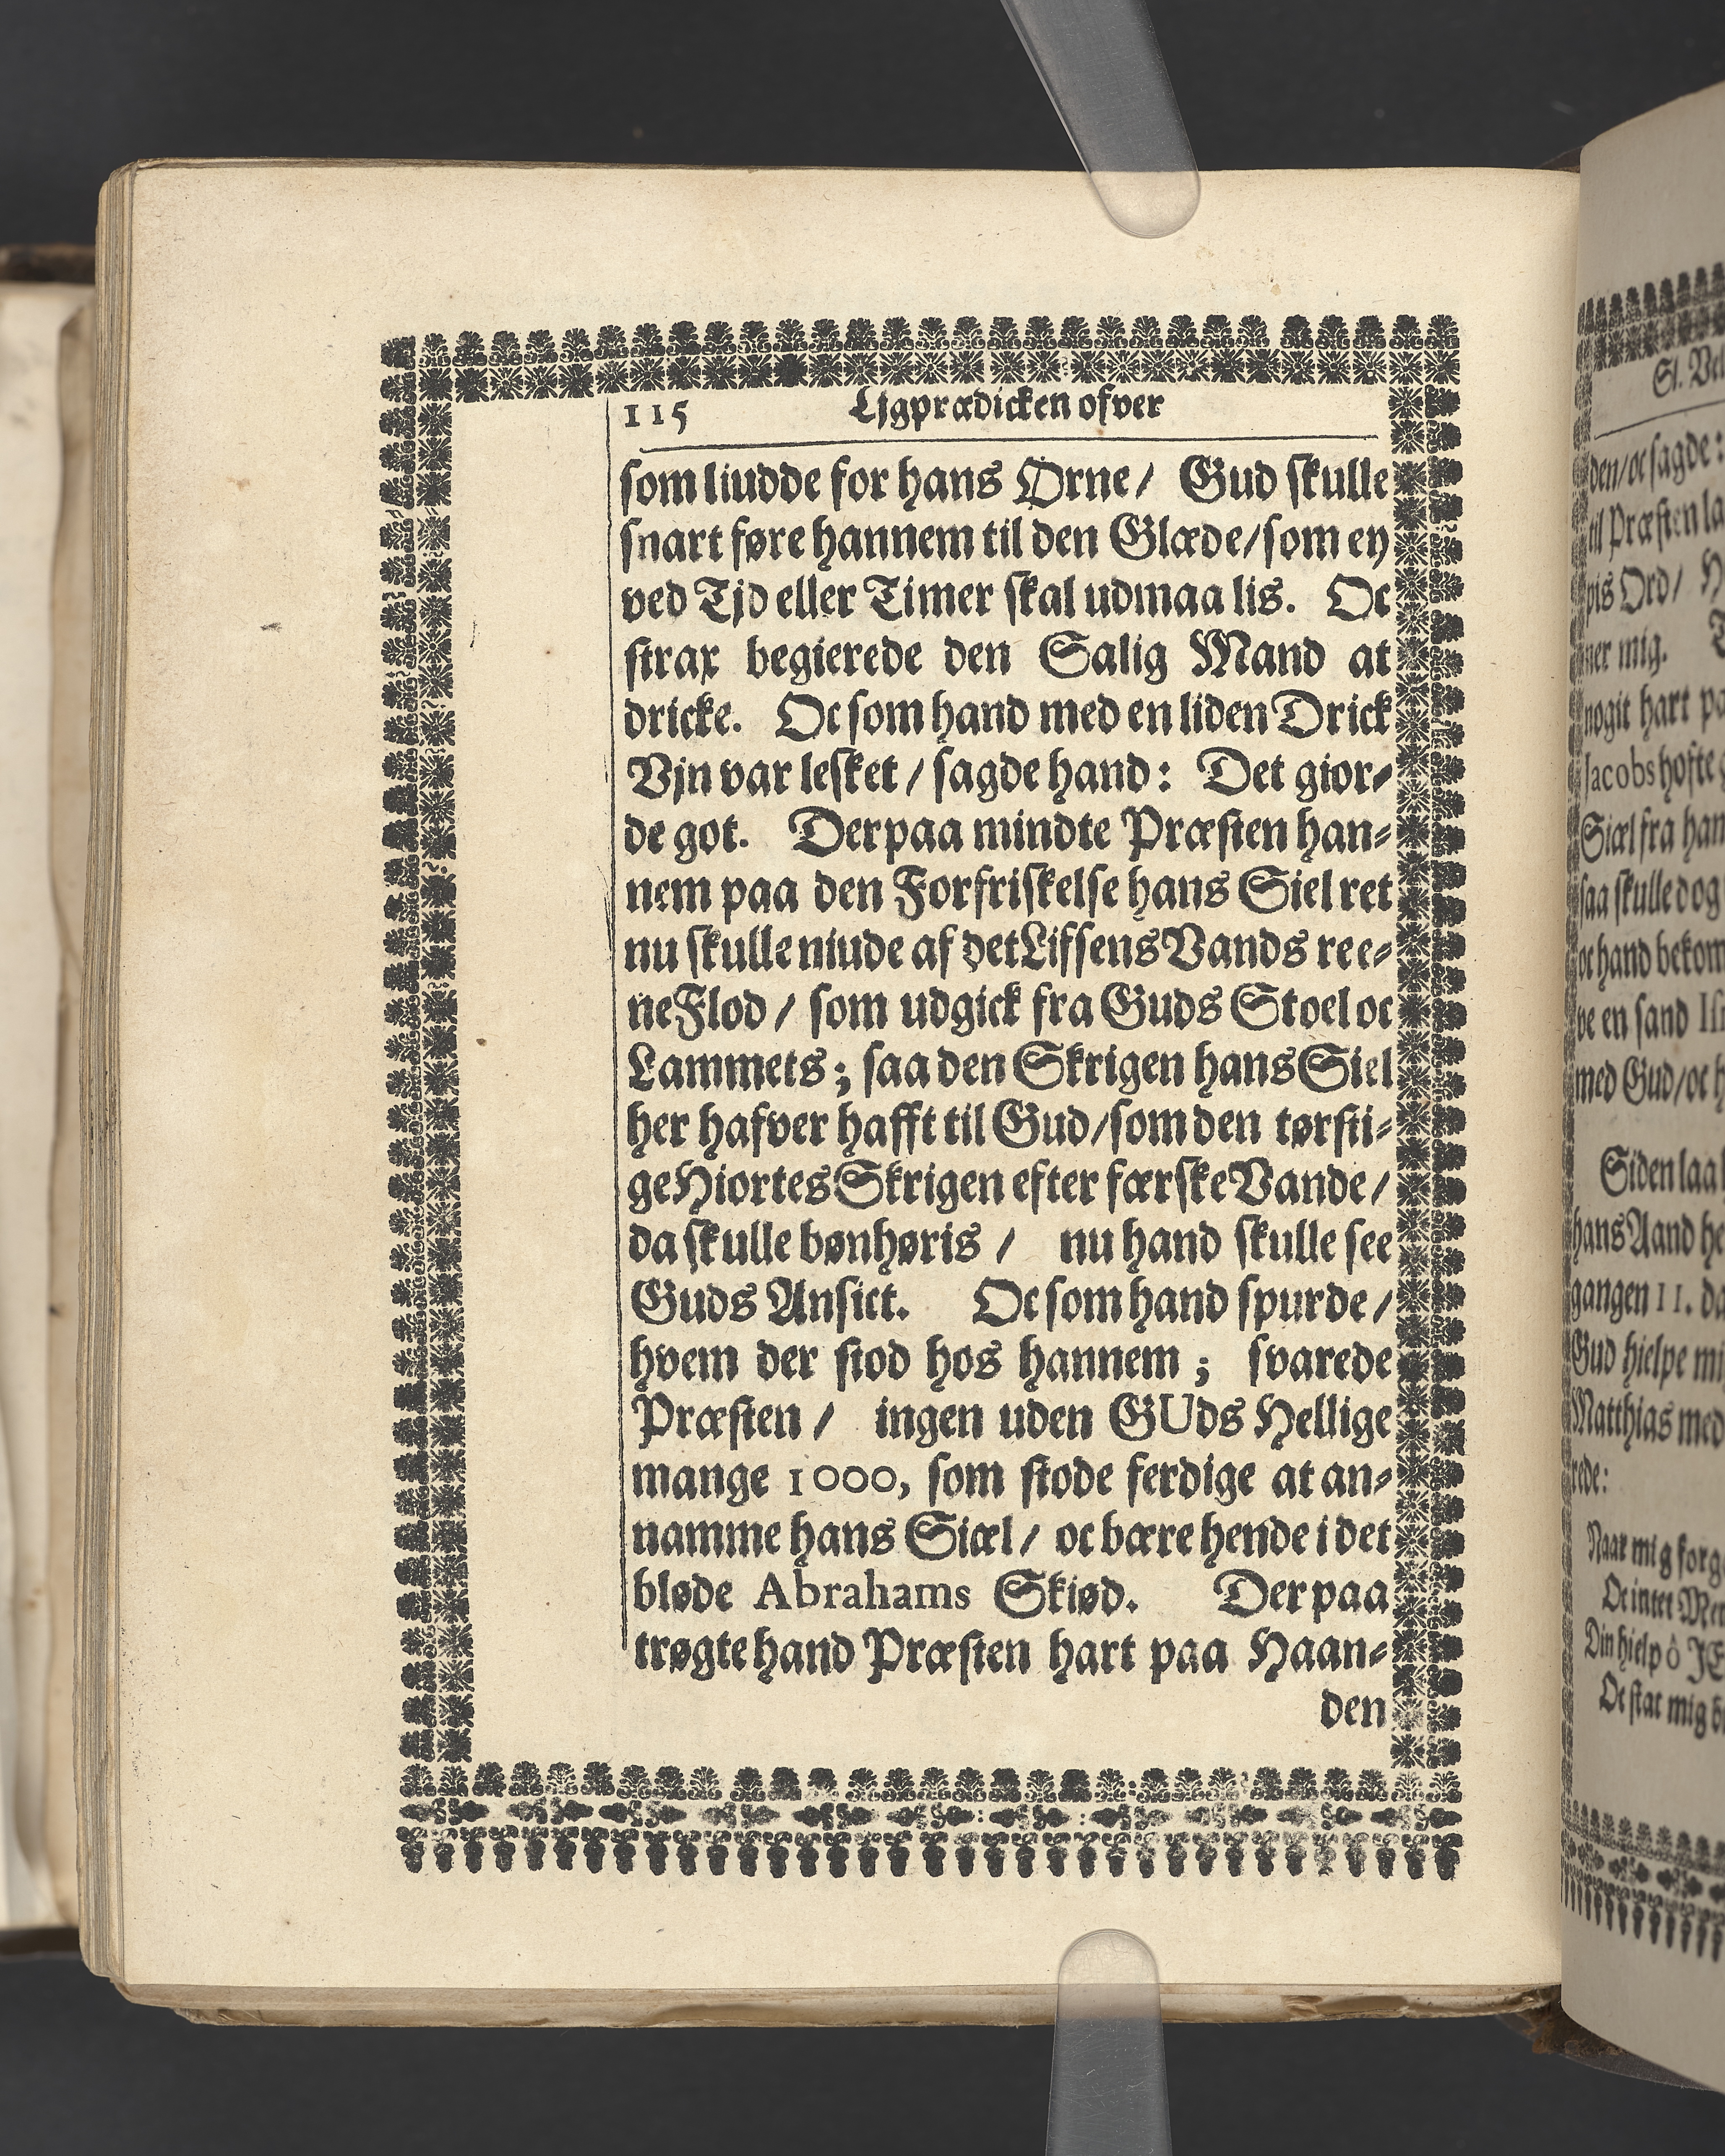 115 Ljgprædicken ofver
som liudde for hans Ørne / Gud skulle
snart føre hannem til den Glæde / som ey
ved Tjd eller Timer skal udmaa lis. Oc
strax begierede den Salig Mand at
dricke. Oc som hand med en liden Drick
Vjn var lesket / sagde hand: Det gior-
de got. Derpaa mindte Præsten han-
nem paa den Forfriskelse hans Siel ret
nu skulle niude af det Lifsens Vands ree-
ne Flod / som udgick fra Guds Stoel oc
Lammets; saa den Skrigen hans Siel
her hafver hafft til Gud / som den tørsti-
ge Hiortes Skrigen efter færske Vande /
da skulle bønhøris / nu hand skulle see
Guds Ansict. Oc som hand spurde /
hvem der stod hos hannem; svarede
Præsten / ingen uden GUds Hellige
mange 1000, som stode ferdige at an-
namme hans Siæl / oc bære hende i det
bløde Abrahams Skiød. Der paa
trøgte hand Præsten hart paa Haan-
den
den / oc sagde:
til Præsten
Ord /
ner mig.
nogit hart
Jacobs hofte
Siæl fra
saa skulle dog
oc hand
en sand
med Gud / oc
Siden laa
hans Aand
gangen 11.
Gud hielpe
Matthias med
rede:
Naar mig
Oc intet
Din hielp ô
Oc stat mig